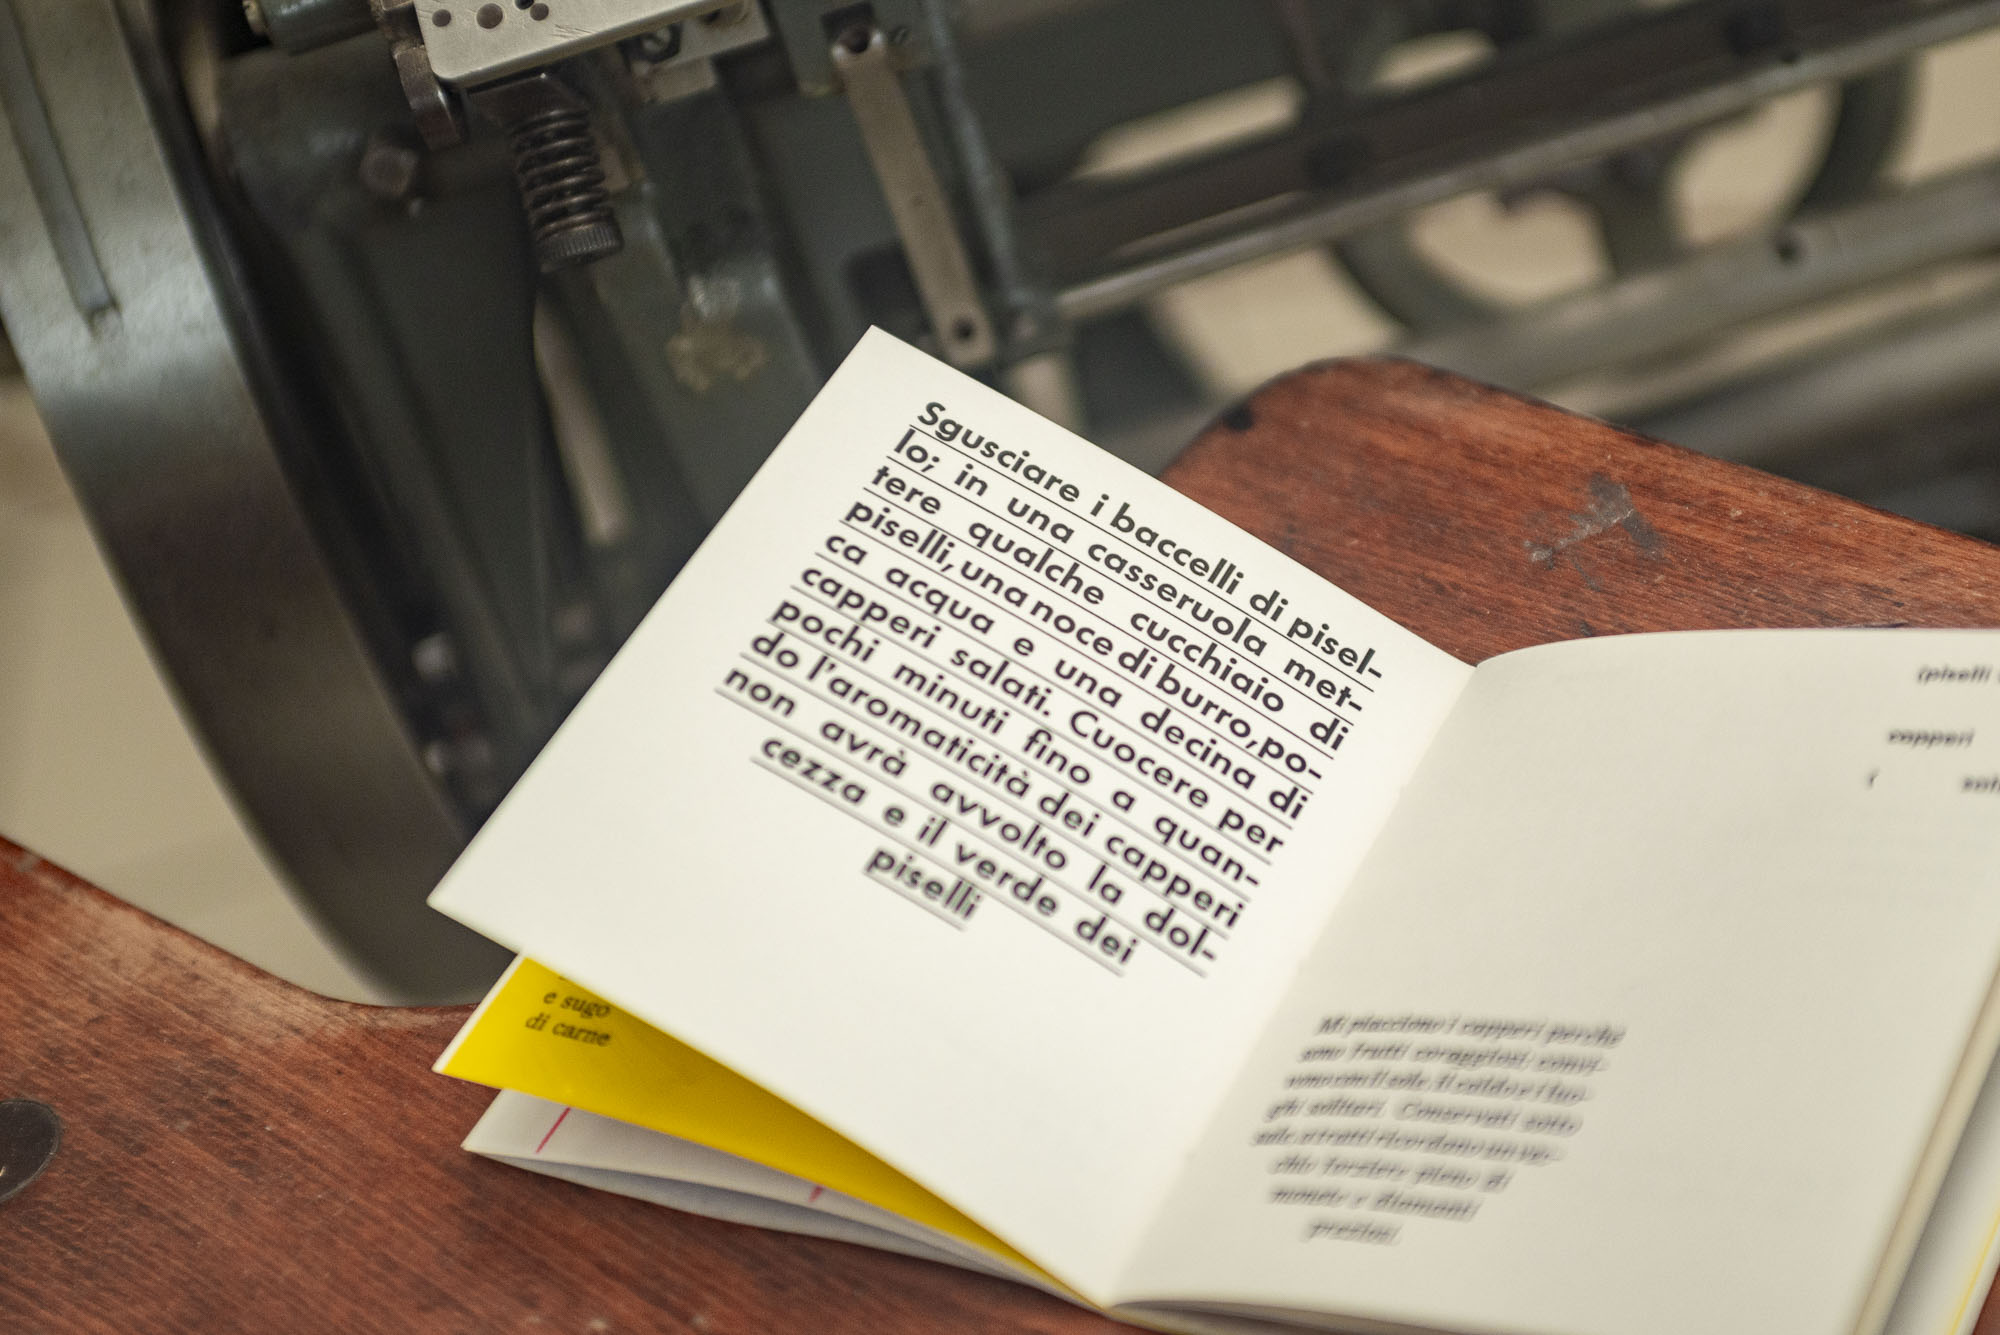 Sgusciare i baccelli di pisel-
lo; in una casseruola met-
tere qualche cucchiaio di
piselli, una noce di burro, po-
ca acqua e una decina di
capperi salati. Cuocere per
pochi minuti fino a quan-
do l'aromaticità dei capperi
non avrà avvolto la dol-
cezza e il verde dei
piselli
e sugo
di carne
(piselli
capperi
Mi piacciono i capperi perché
sono frutti coraggiosi: convi-
vono con il sole, il caldo e i luo-
ghi solitari. Conservati sotto
sale, a tratti ricordano un vec-
chio forziere pieno di
monete e diamanti
preziosi.